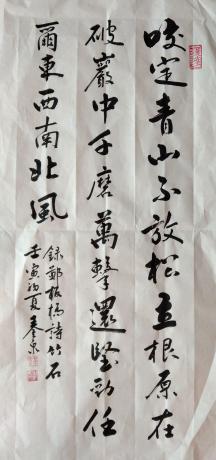 咬定青山不放松立根原在
破巖中千磨萬擊還堅勁任
爾東西南北風
録鄭板橋詩竹石
壬寅初夏